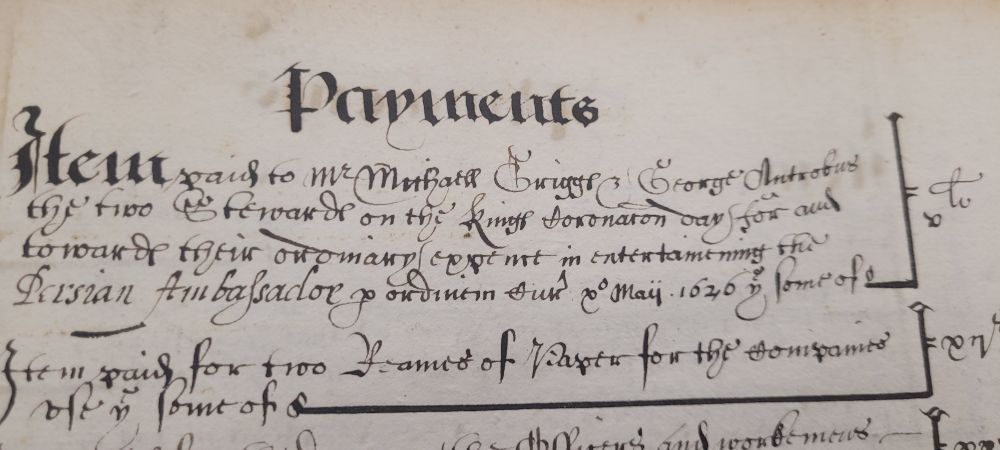 Payments
Item paid to Mr Michaell Griggs & George Antrobus
the two Stewards on the Kings Coronacon day for and
towards their ordinary expence in entertaineing the
Persian Ambassador p ordinem Cur xo Maii 1626 ye some of
v li
Item paid for two Reames of Paper for the Companies
vse ye some of
xij s
the Officers and workemens